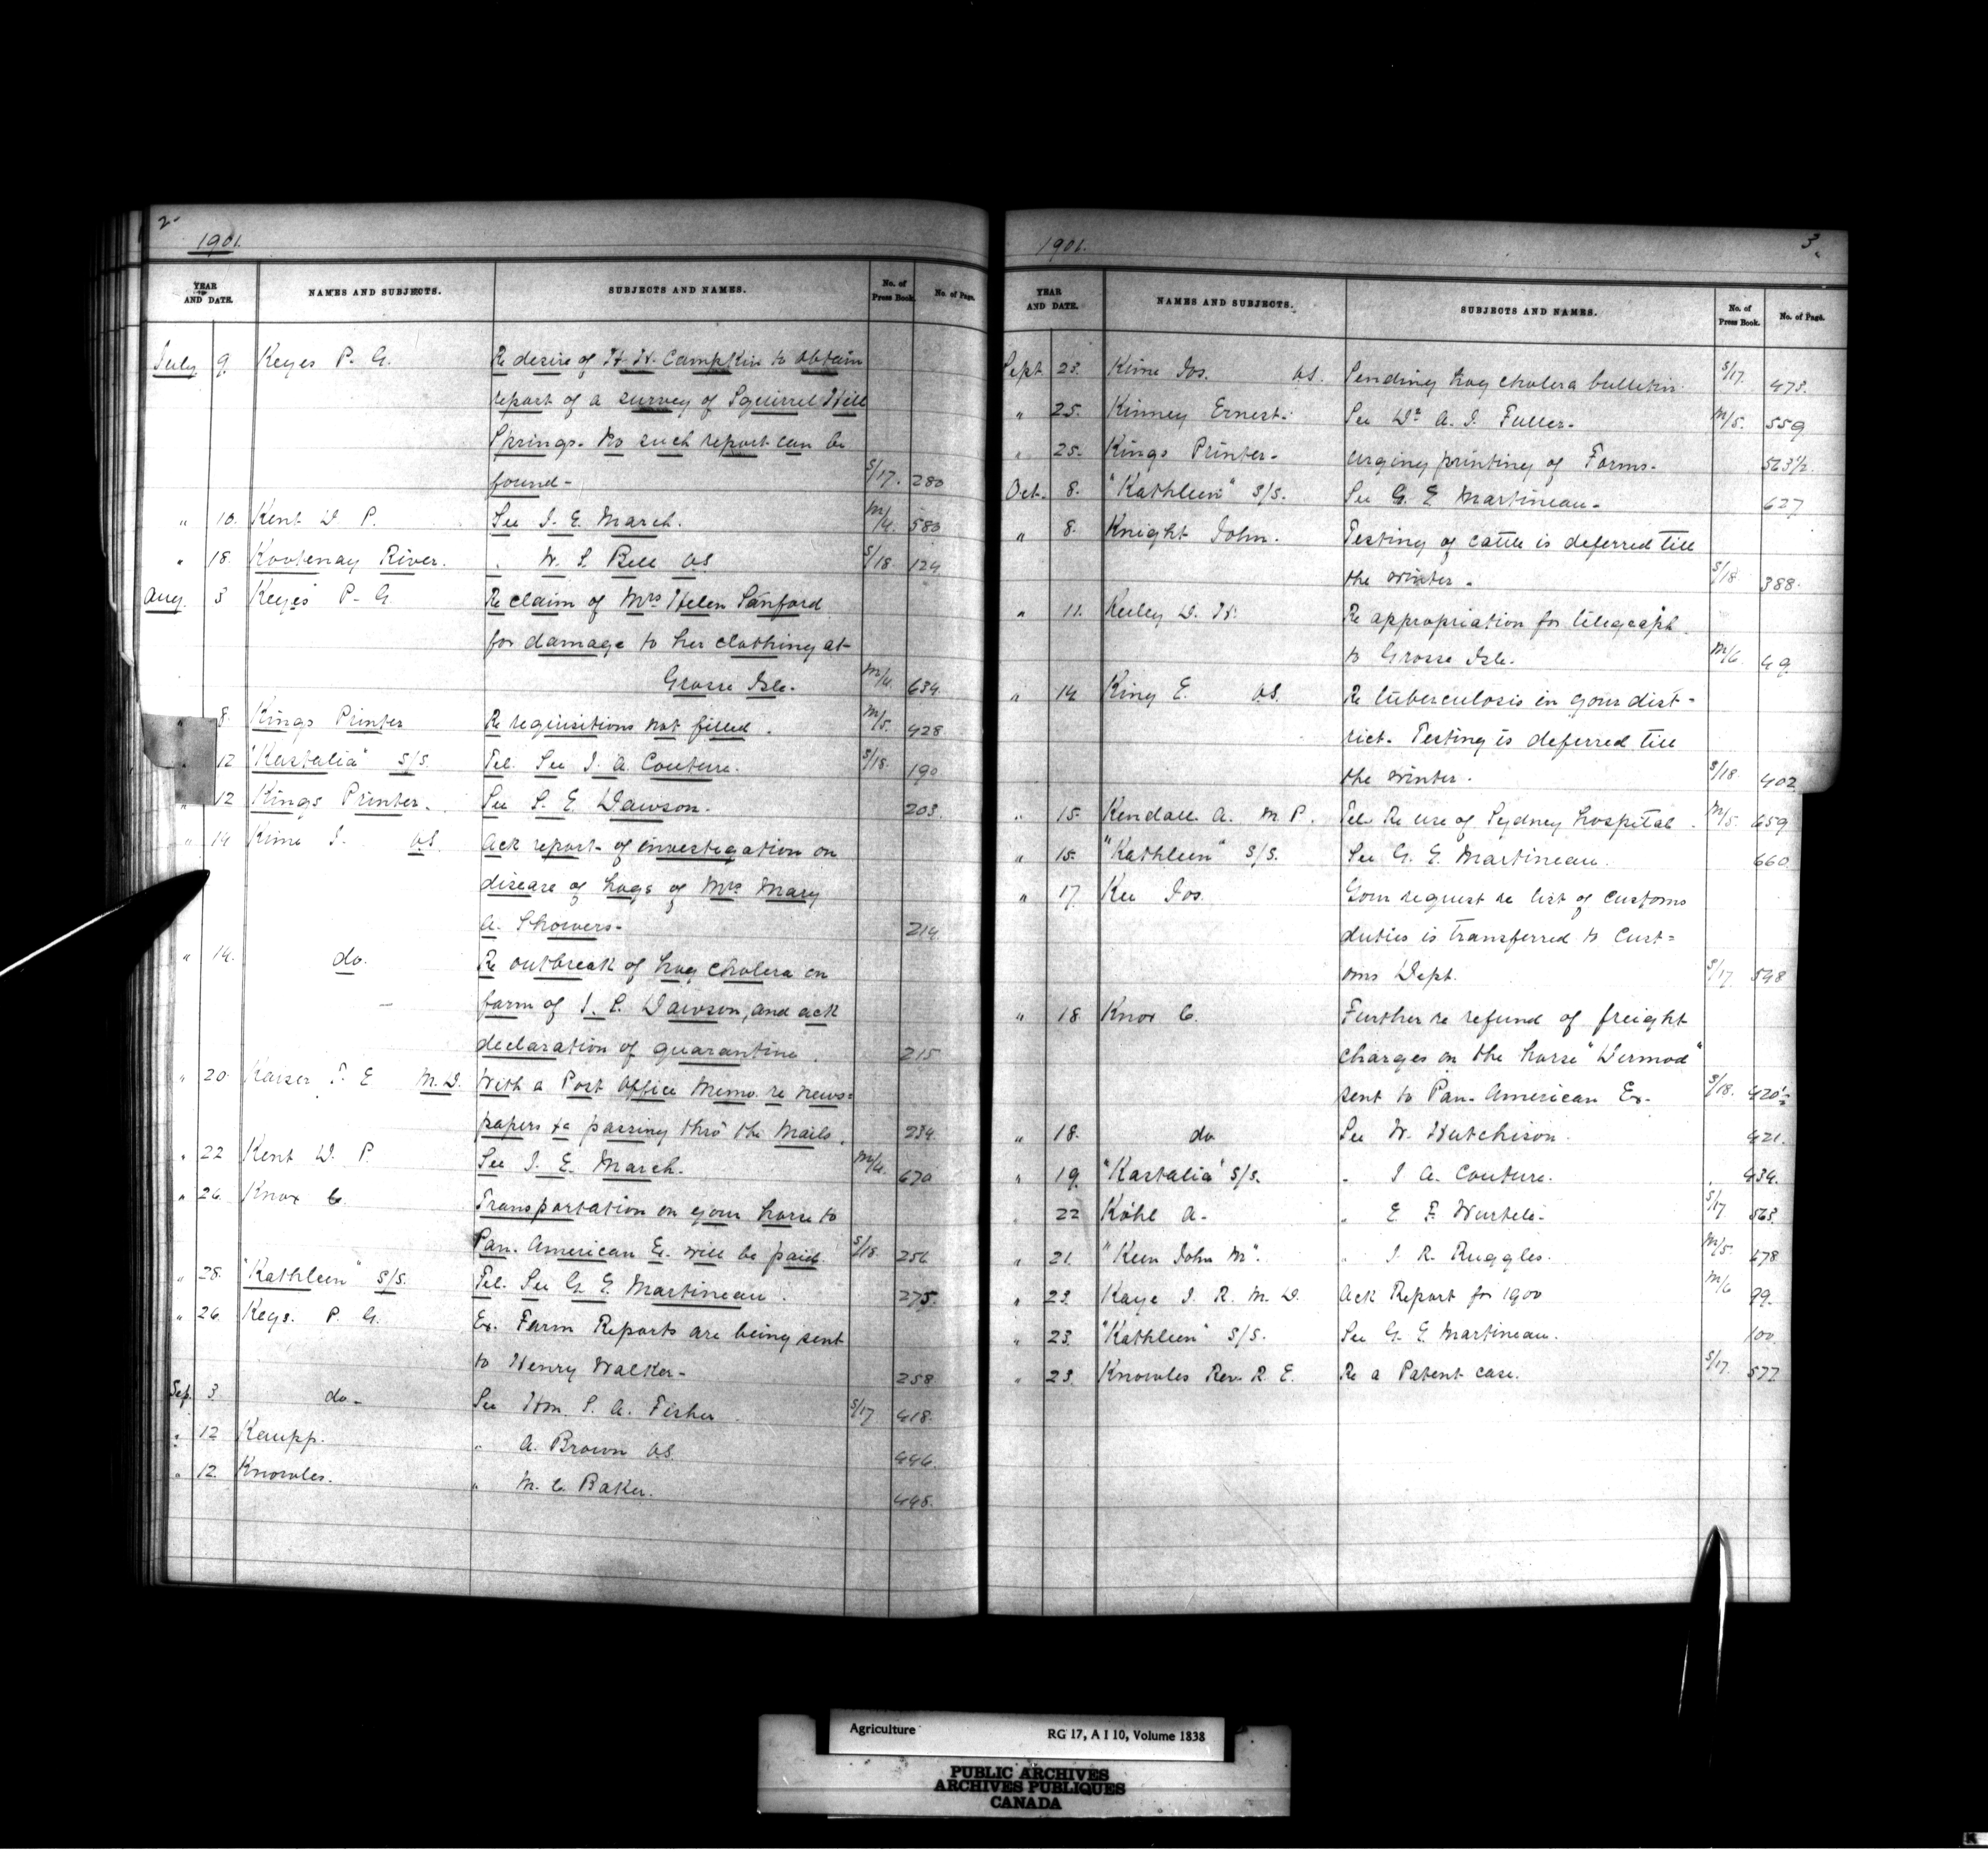 2
1901.
YEAR AND DATE. NAMES AND SUBJECTS. SUBJECTS AND NAMES. No. of Press Book. No. of Page.
July 9. Keyes P. G. Re desire of H. H. Campkin to obtain
report of a survey of Squirrel Hill
Springs. No such report can be
found - S/17. 280
" 10. Kent D P. See J. E. March. M/4. 583
" 18. Kootenay River. " W. S Bell VS S/18 124
Aug. 3 Keyes P. G. Re claim of Mrs Helen Sanford
for damage to her clothing at
Grosse Isle. M/4. 634.
" 8. Kings Printer Re requisitions not filled. M/5. 428
" 12 "Kastalia" S/S. Tel. See J. A. Couture. S/18. 190
" 12 Kings Printer. See S. E. Dawson. 203.
" 14 Kime J. VS. Ack report of investigation on
disease of hogs of Mrs Mary
A. Showers. 214
" 14. do. Re outbreak of hog cholera on
farm of J. P. Dawson, and ack
declaration of quarantine. 215
" 20 Kaiser T. E M.D. With a Post Office Memo. re news=
papers &c passing thro' the Mails. 234
" 22 Kent D. P. See J. E. March. M/4. 670
" 26 Knox C. Transportation on your horse to
Pan. American Ex. will be paid. S/18. 256
" 28. "Kathleen" S/S. Tel. See G. E. Martineau. 275.
" 26. Keys. P. G. Ex. Farm Reports are being sent
to Henry Walker. 258
Sep. 3. do. See Hon. S. A. Fisher S/17 418.
" 12 Kaupp. " A. Brown VS 446.
" 12. Knowles. " M. C. Baker. 448.
1901. 3.
YEAR AND DATE. NAMES AND SUBJECTS. SUBJECTS AND NAMES. No. of Press Book. No. of Page.
Sept 23. Kime Jos. VS. Sending hog cholera bulletin. S/17. 473.
" 25. Kinney Ernest. See Dr A. J. Fuller. M/5. 559
" 25. Kings Printer. Urging printing of Forms. 563½
Oct. 8. "Kathleen" S/S. See G. E Martineau. 627
" 8. Knight John. Testing of cattle is deferred till
the winter. S/18 388.
" 11. Keeley D. H. Re appropriation for telegraph
to Grosse Isle. M/6. 49
" 14 King E. VS. Re tuberculosis in your dist-
rict. Testing is deferred till
the winter. S/18 402
" 15. Kendall A. M. P. Tel. Re use of Sydney hospital. M/5. 659
" 15. "Kathleen" S/S. See G. E. Martineau. 660
" 17. Kee Jos. Your request re list of customs
duties is transferred to Cust=
oms Dept. S/17 548
" 18 Knox C. Further re refund of freight
charges on the horse "Dermod"
sent to Pan. American Ex. S/18. 420½
" 18. do See W. Hutchison. 421.
" 19. "Kastalia" S/S. " J. A. Couture. " 434.
" 22 Köhl A. " E. F. Wurtele. S/17 563.
" 21. "Keen John M". " J. R. Ruggles. M/5. 678
" 23. Kaye J. R. M. D. Ack Report for 1900 M/6 99.
" 23. "Kathleen" S/S. See G. E. Martineau. 100
" 23. Knowles Rev. R. E. Re a Patent case. S/17. 577
Agriculture RG 17, A I 10, Volume 1838
PUBLIC ARCHIVES
ARCHIVES PUBLIQUES
CANADA
K